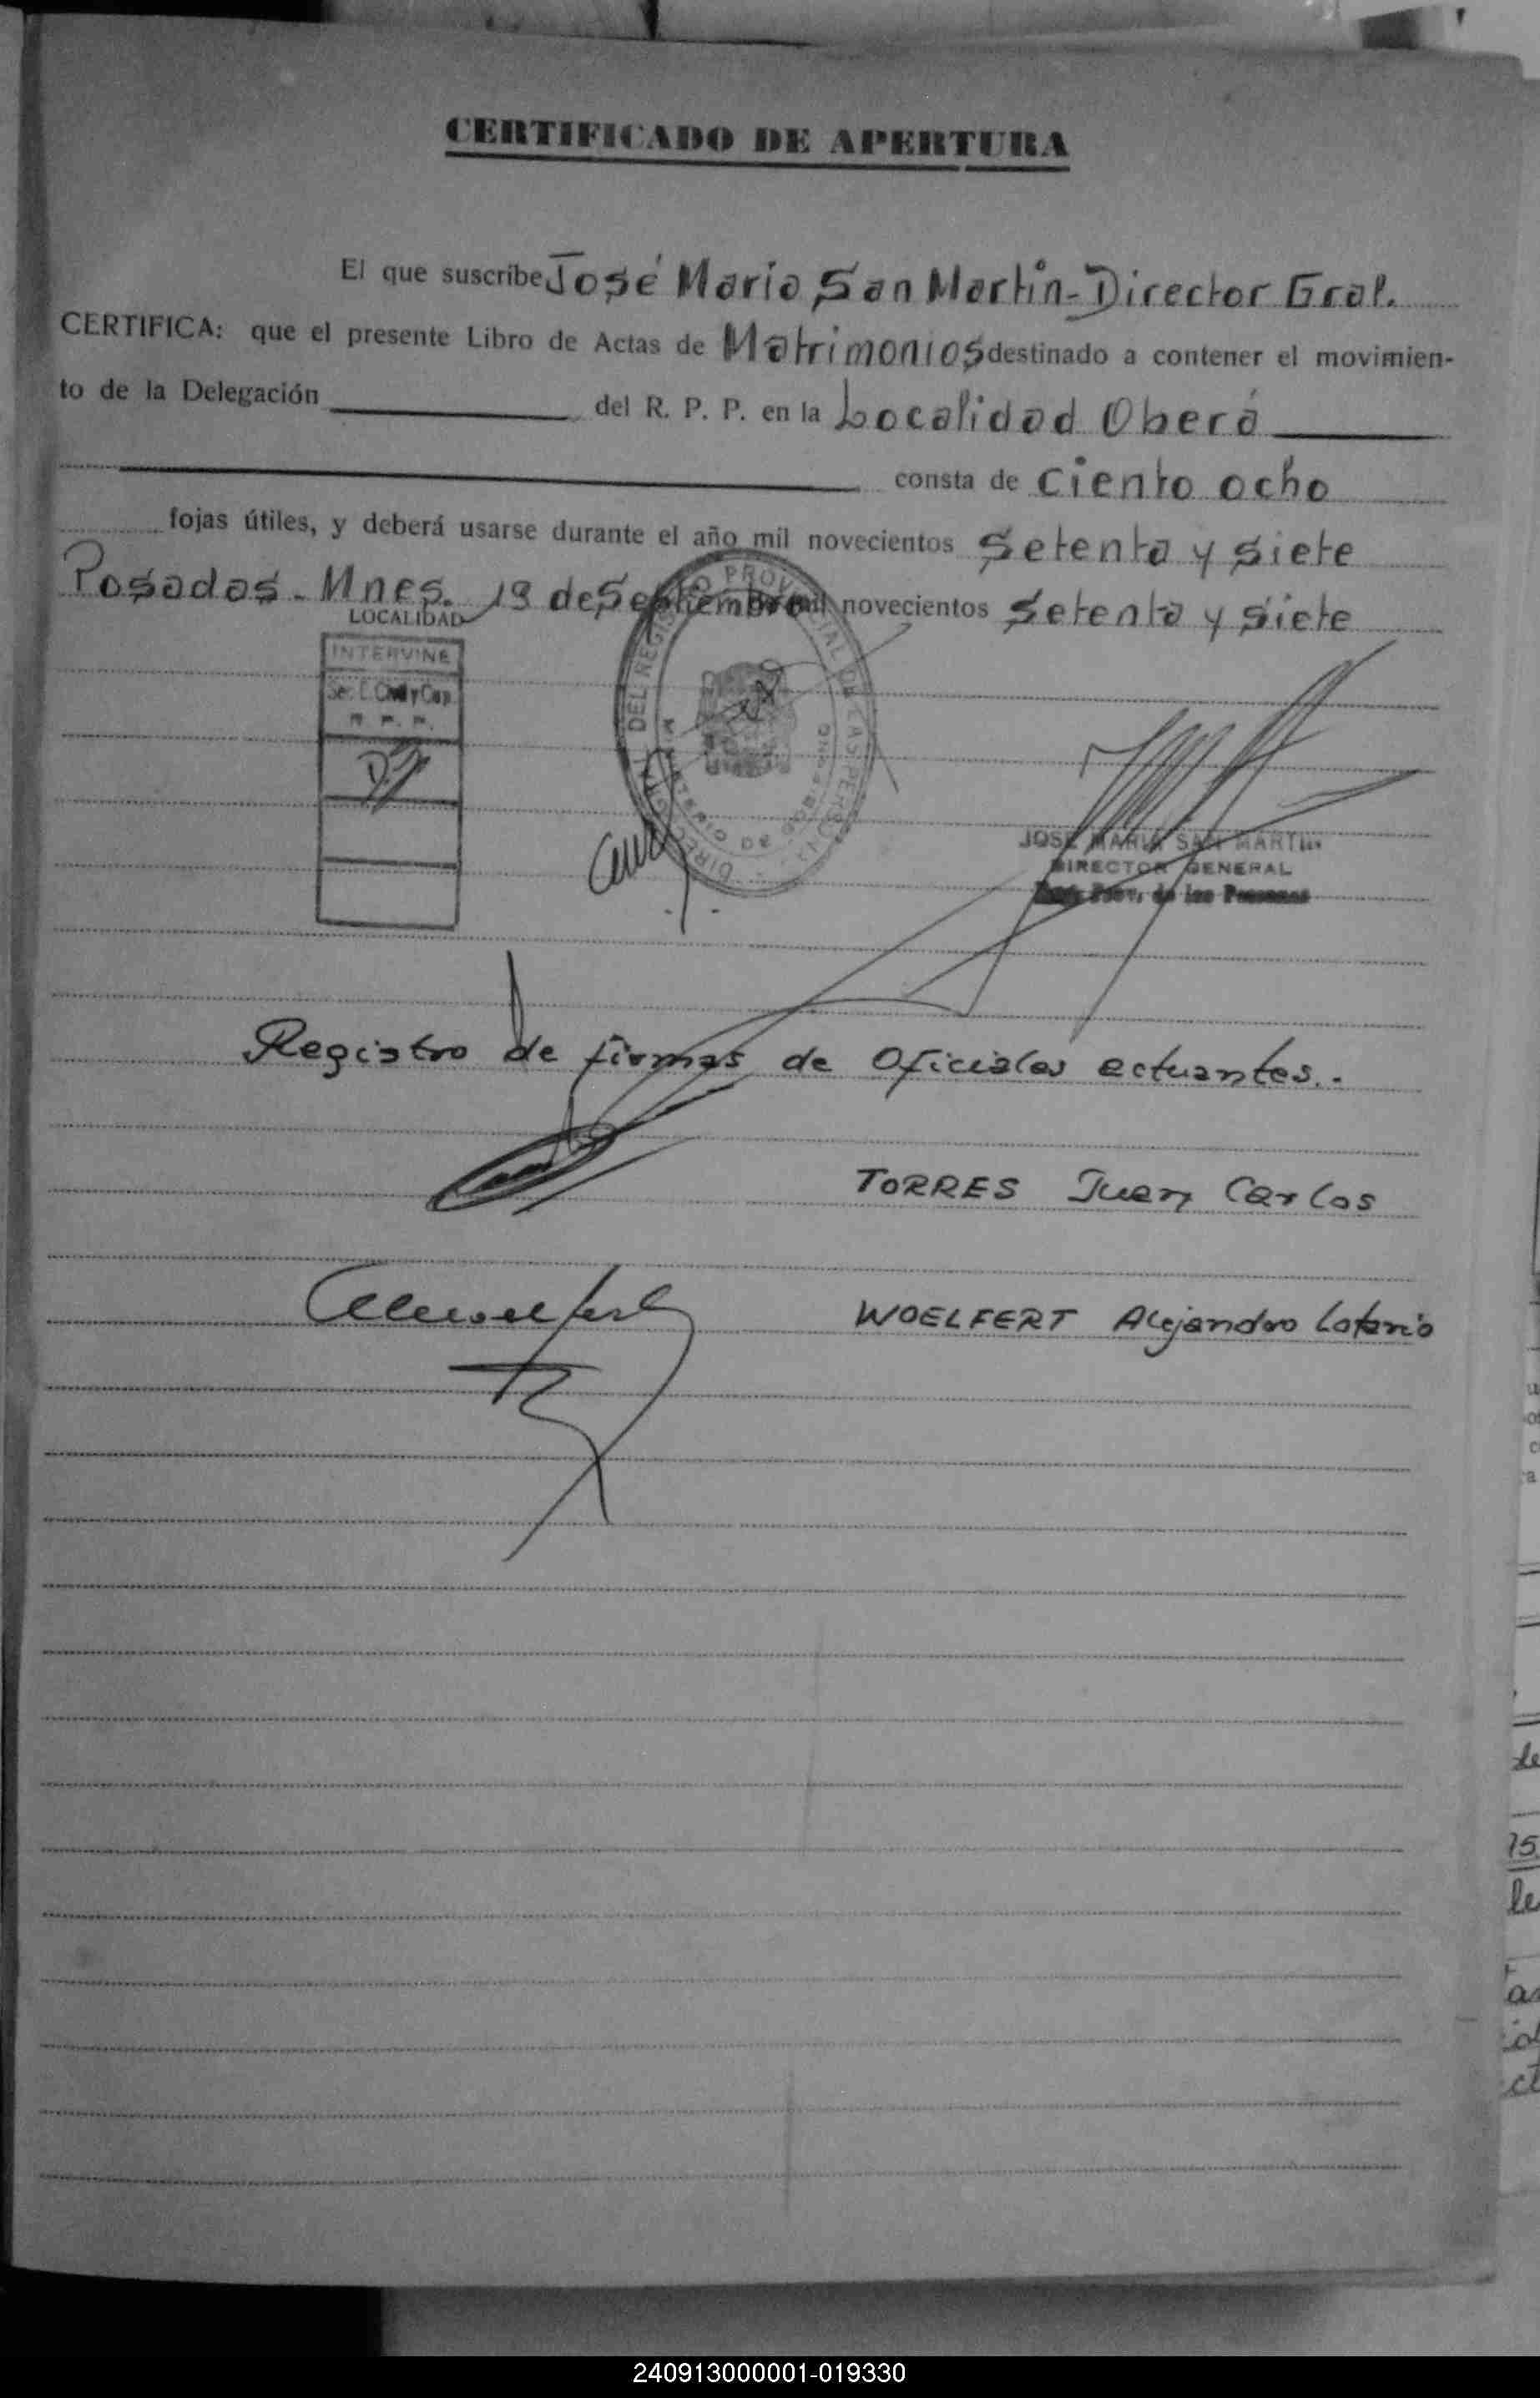 CERTIFICADO DE APERTURA
El que suscribe José María San Martín - Director Gral.
CERTIFICA: que el presente Libro de Actas de Matrimonios destinado a contener el movimien-
to de la Delegación del R. P. P. en la Localidad Oberá
consta de ciento ocho
fojas útiles, y deberá usarse durante el año mil novecientos setenta y siete
Posadas - Mnes. 19 de Septiembre mil novecientos setenta y siete
LOCALIDAD
INTERVINE
Sec. E. Civil y Cap.
R. P. P.
DIREC. GRAL. DEL REGISTRO PROVINCIAL DE LAS PERSONAS
MINISTERIO DE GOBIERNO
JOSE MARIA SAN MARTIN
DIRECTOR GENERAL
Prov. de las Personas
Registro de firmas de Oficiales actuantes.-
TORRES Juan Carlos
WOELFERT Alejandro Lotario
u
c
a
de
15
le
a
ct
240913000001-019330